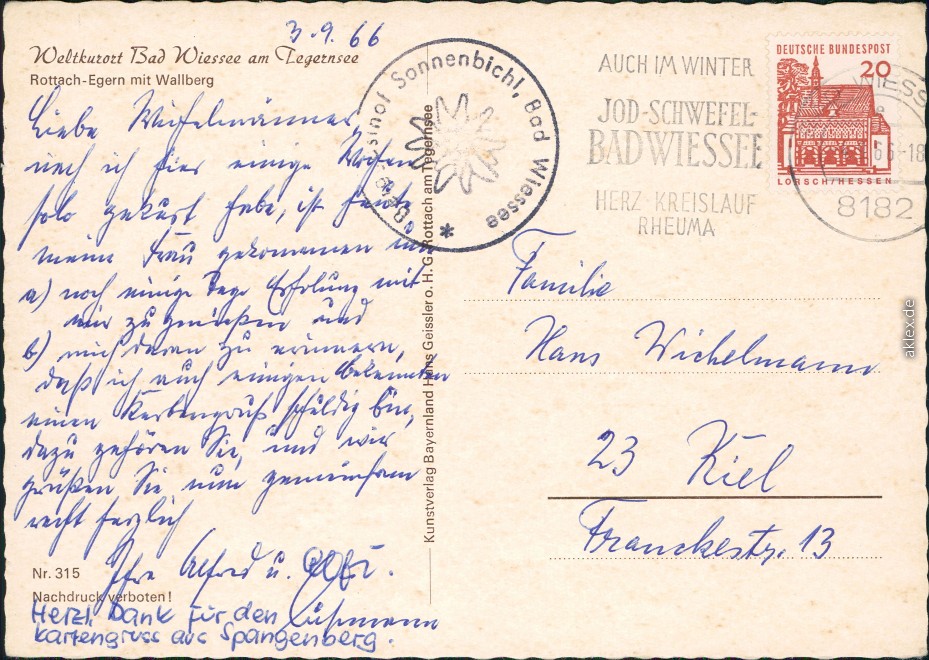 3.9.66
Weltkurort Bad Wiessee am Tegernsee
Rottach-Egern mit Wallberg
Liebe Wichelmänner,
nach ich hier einige Wochen
solo gekurt habe, ist heute
meine Frau gekommen um
a) noch einige Tage Erholung mit
mir zu genießen und
b) mich daran zu erinnern,
daß ich auch einigen Bekannten
einen Kartengruß schuldig bin,
dazu gehören Sie, und wir
grüßen Sie nun gemeinsam
recht herzlich
Ihre Alfred u.
Nr. 315
Nachdruck verboten!
Herzl. Dank für den
Kartengruss aus Spangenberg.
Sonnenbichl, Bad Wiessee
*
Kunstverlag Bayernland Hans Geissler o. H. G. Rottach am Tegernsee
AUCH IM WINTER
JOD-SCHWEFEL-
BAD WIESSEE
HERZ-KREISLAUF
RHEUMA
DEUTSCHE BUNDESPOST
20
LORSCH/HESSEN
WIESS
66-18
8182
Familie
Hans Wichelmann
23 Kiel
Franckestr. 13
aklex.de